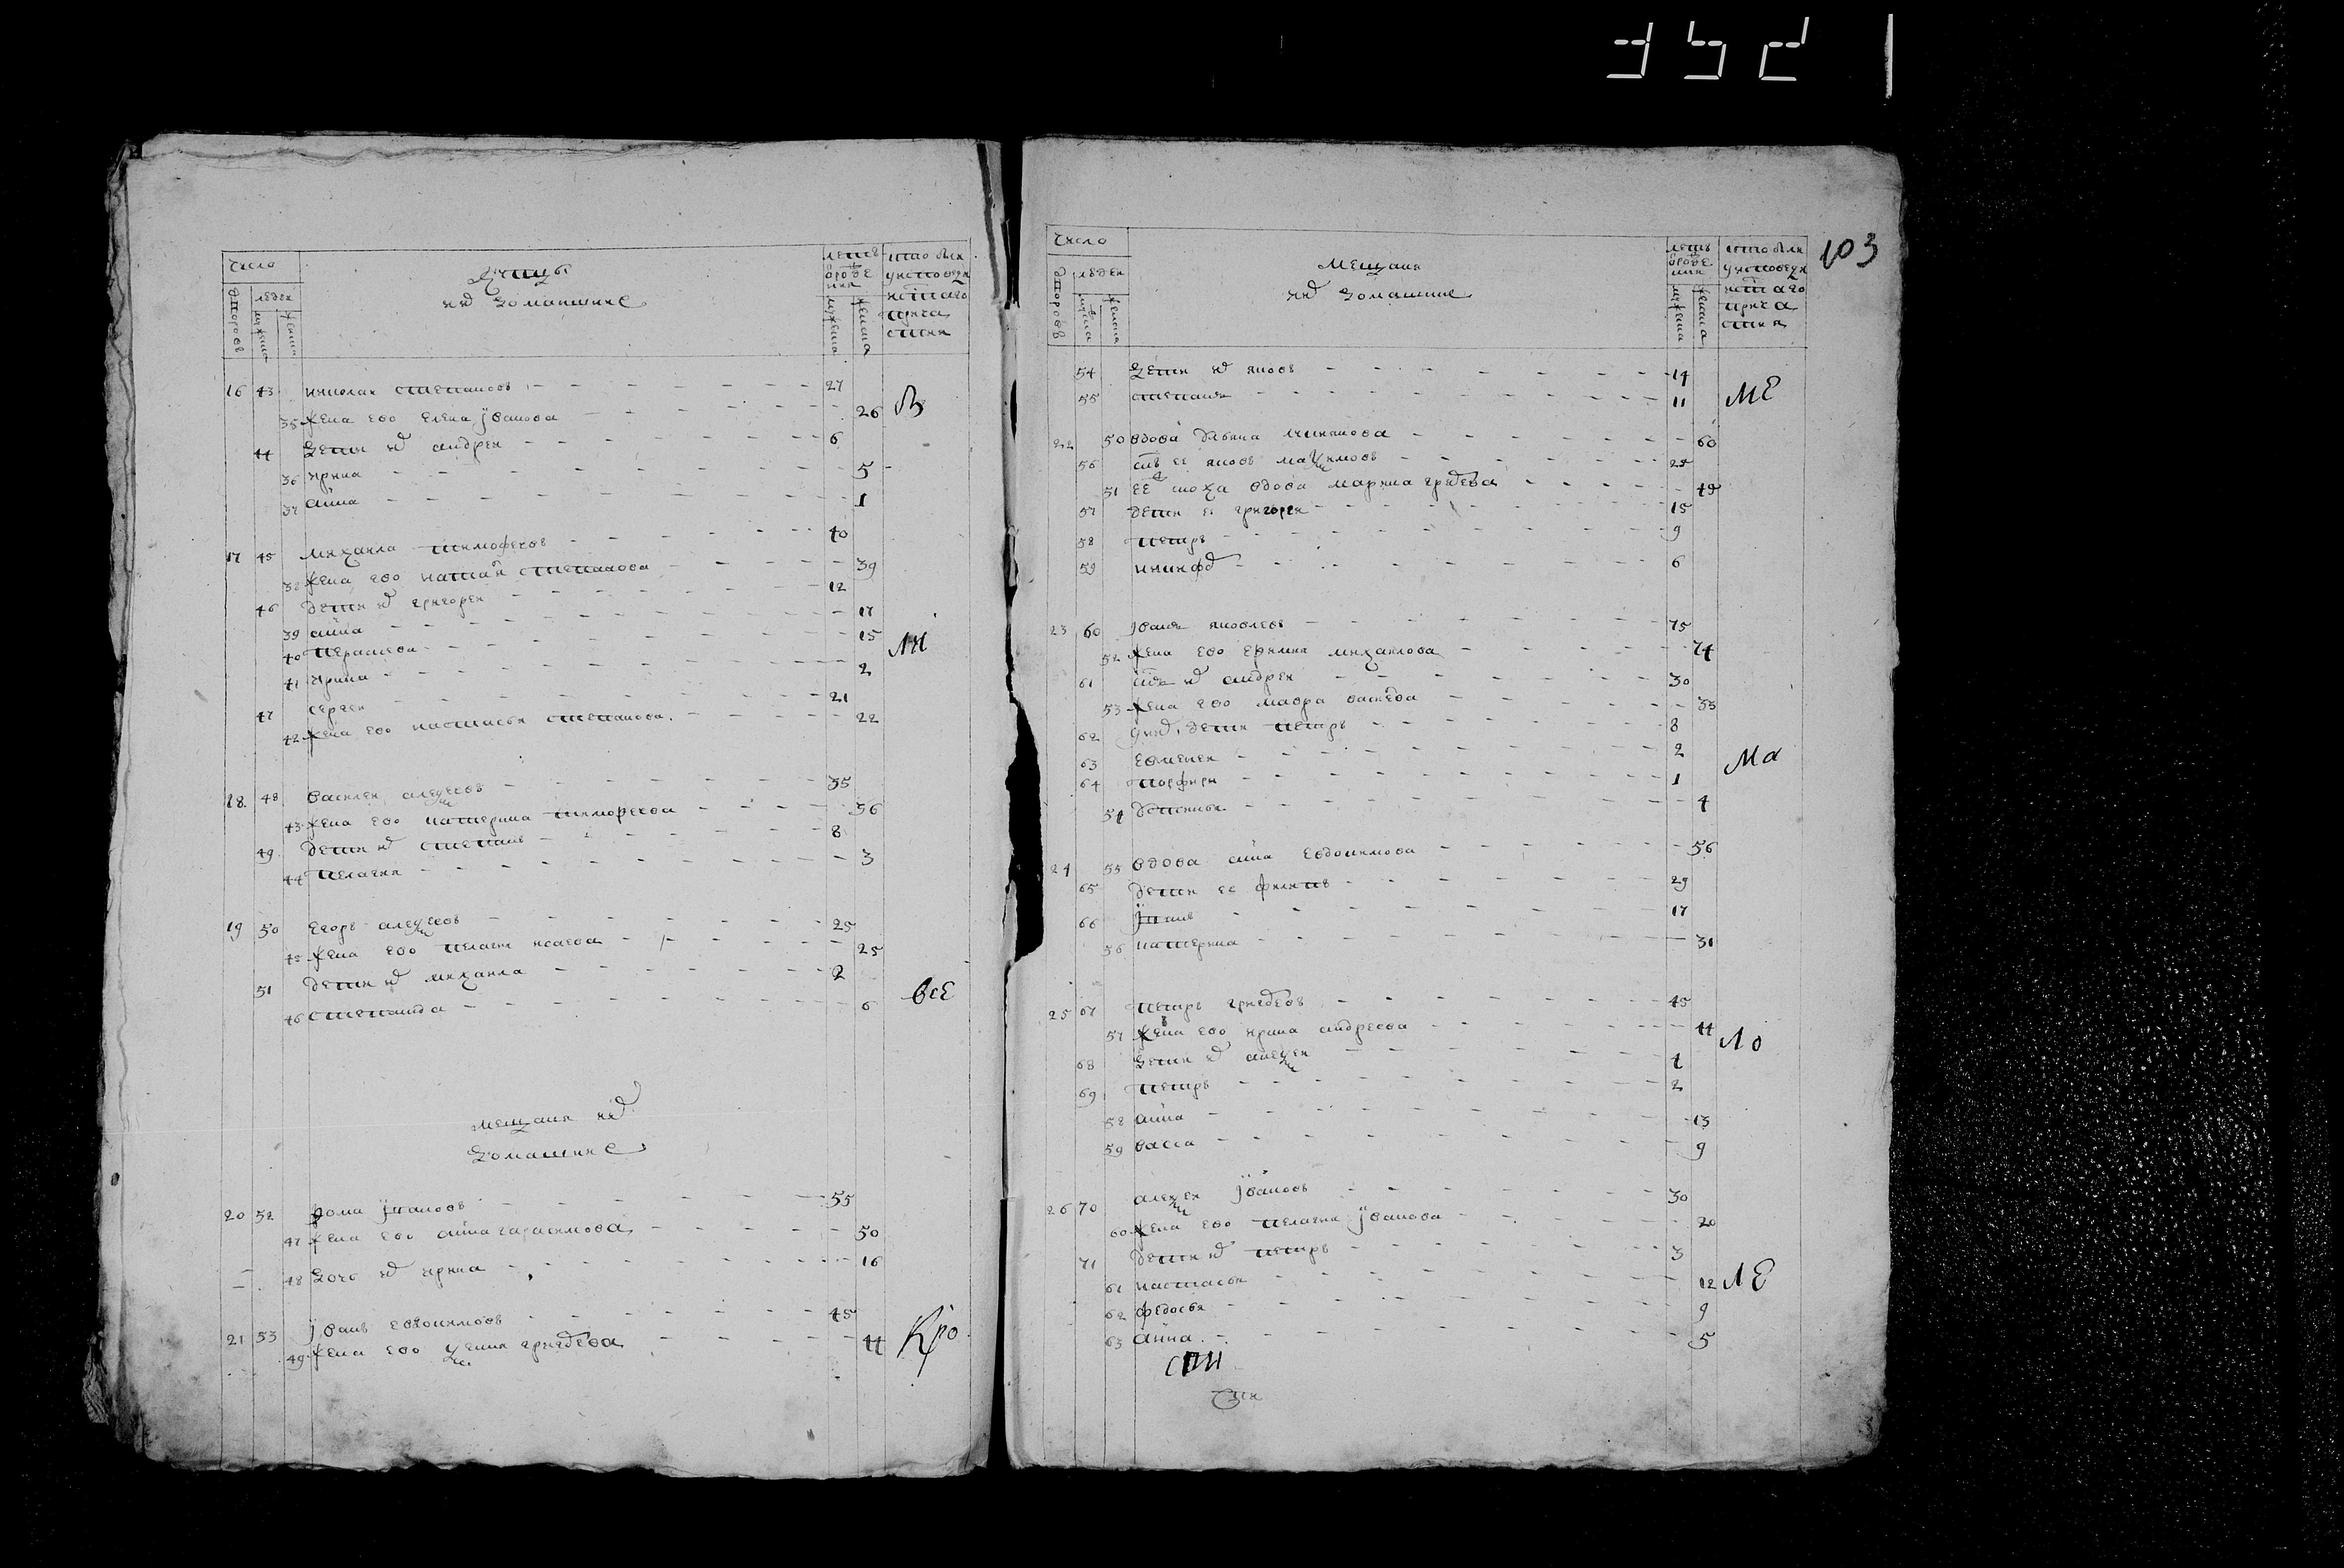 352
число
дворовъ
людеи
мужеска
женска
купцы
их домашние
летъ от рождения
мужеска
женска
кто был у исповеди и свтаго причастия
16 43 николаи степановъ 27
35 жена ево елена ивановна 26
44 дети их андреи 6
36 ирина 5
37 анна 1
17 45 михаила тимофеевъ 40
38 жена ево наталя степанова 39
46 дети их григореи 12
39 анна 17
40 перасковя 15
ли
41 ирина 2
47 сергеи 21
42 жена ево настасья степанова 22
18 48 василеи алеѯеевъ 35
43 жена ево катерина тимофеева 36
49 дети их степанъ 8
44 пелагея 3
19 50 егоръ алеѯеевъ 25
45 жена ево пелагея исаева 25
51 дети их михаила 2
все
46 степанида 6
мещане их
домашние
20 52 фома ивановъ 55
47 жена ево анна гарасимова 50
48 дочь их ирина 16
21 53 иванъ евдокимовъ 45
49 жена ево ѯения григорева 44
кро
103
число
дворовъ
людеи
мужеска
женска
мещане
их домашние
летъ от рождения
мужеска
женска
кто был у исповеди и свтаго причастия
54 дети их яковъ 14
55 степанъ 11
ме
22 50 вдова никонова 60
56 снъ ее яковъ маѯимовъ 25
51 ее сноха вдова марина григорева
57 дети ее григореи 15
58 петръ 9
59 никифор 6
23 60 иванъ яковлевъ 75
52 жена ево михаилова 74
61 снъ их андреи 30
53 жена ево мавра василева 33
62 у них дети петръ 8
63 евменеи 2
ма
64 порфири 1
54 4
24 55 вдова анна евдокимова 56
65 дети ее филипъ 29
66 иванъ 17
56 катерина 31
25 67 петръ григоревъ 45
57 жена ево ирина андреева 44
ло
68 дети их алеѯеи
69 петръ 2
58 анна 13
59 васса 9
26 70 алеѯеи ивановъ 30
60 жена ево пелагея иванова 20
71 дети их петръ 3
61 настасья 12
ле
62 федосья 9
63 анна 5